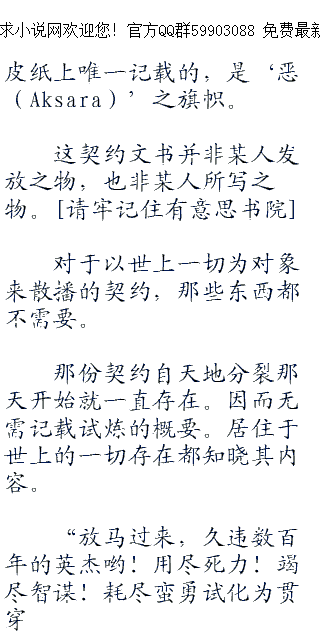 求小说网欢迎您！官方QQ群59903088 免费最新
皮纸上唯一记载的，是‘恶
（Aksara）’之旗帜。
这契约文书并非某人发
放之物，也非某人所写之
物。[请牢记住有意思书院]
对于以世上一切为对象
来散播的契约，那些东西都
不需要。
那份契约自天地分裂那
天开始就一直存在。因而无
需记载试炼的概要。居住于
世上的一切存在都知晓其内
容。
“放马过来，久违数百
年的英杰哟！用尽死力！竭
尽智谋！耗尽蛮勇试化为贯
穿